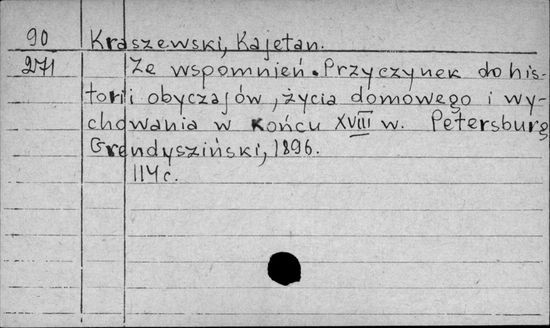 90 Kraszewski, Kajetan.
271 Ze wspomnień. Przyczynek do his-
torii obyczajów, życia domowego i wy-
chowania w końcu XVIII w. Petersburg
Grendysziński, 1896.
114 c.